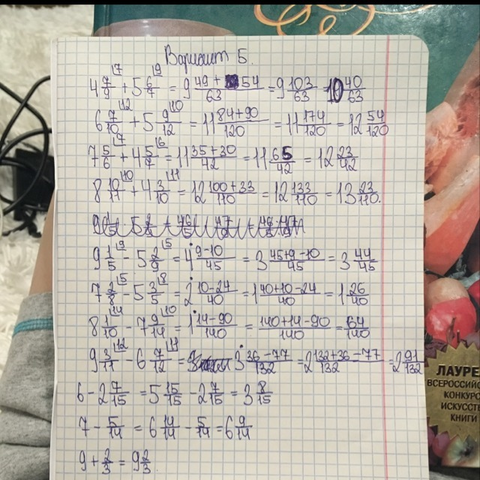 Вариант Б.
4 7/9 + 5 6/7 = 9 49+54/63 = 9 103/63 = 10 40/63
6 7/10 + 5 9/12 = 11 84+90/120 = 11 174/120 = 12 54/120
7 5/6 + 4 5/7 = 11 35+30/42 = 11 65/42 = 12 23/42
8 10/11 + 4 3/10 = 12 100+33/110 = 12 133/110 = 13 23/110.
9 1/5 - 5 2/9 = 4 9-10/45 = 3 45+9-10/45 = 3 44/45
7 2/8 - 5 3/5 = 2 10-24/40 = 1 40+10-24/40 = 1 26/40
8 1/10 - 7 9/14 = 1 14-90/140 = 140+14-90/140 = 64/140
9 3/11 - 6 7/12 = 3 36-77/132 = 2 132+36-77/132 = 2 91/132
6 - 2 7/15 = 5 15/15 - 2 7/15 = 3 8/15
7 - 5/14 = 6 14/14 - 5/14 = 6 9/14
9 + 2/3 = 9 2/3
ЛАУРЕ
ВСЕРОССИЙС
КОНКУРС
ИСКУССТ
КНИГИ